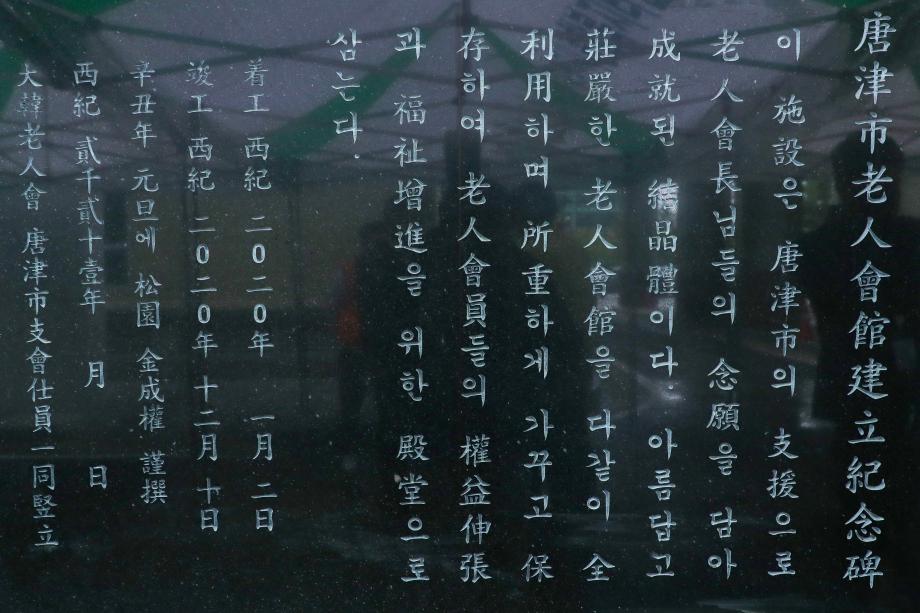 唐津市老人會館建立紀念碑
이 施設은 唐津市의 支援으로
老人會長님들의 念願을 담아
成就된 結晶體이다. 아름답고
莊嚴한 老人會館을 다같이 全
利用하며 所重하게 가꾸고 保
存하여 老人會員들의 權益伸張
과 福祉增進을 위한 殿堂으로
삼는다.
着工 西紀 二０二０年 一月 二日
竣工 西紀 二０二０年 十二月 十日
辛丑年 元旦에 松園 金成權 謹撰
西紀 貳千貳十壹年 月 日
大韓老人會 唐津市支會仕員一同竪立